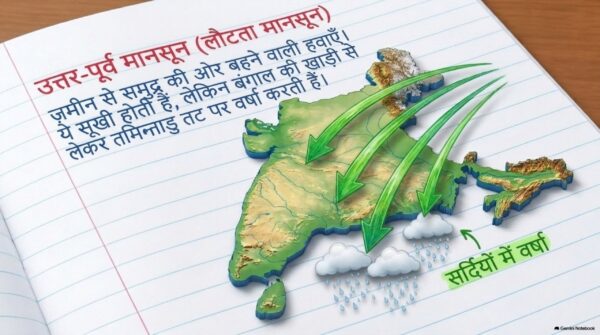 उत्तर-पूर्व मानसून (लौटता मानसून)
ज़मीन से समुद्र की ओर बहने वाली हवाएँ।
ये सूखी होती हैं, लेकिन बंगाल की खाड़ी से
लेकर तमिलनाडु तट पर वर्षा करती हैं।
सर्दियों में वर्षा
Gemini Notebook